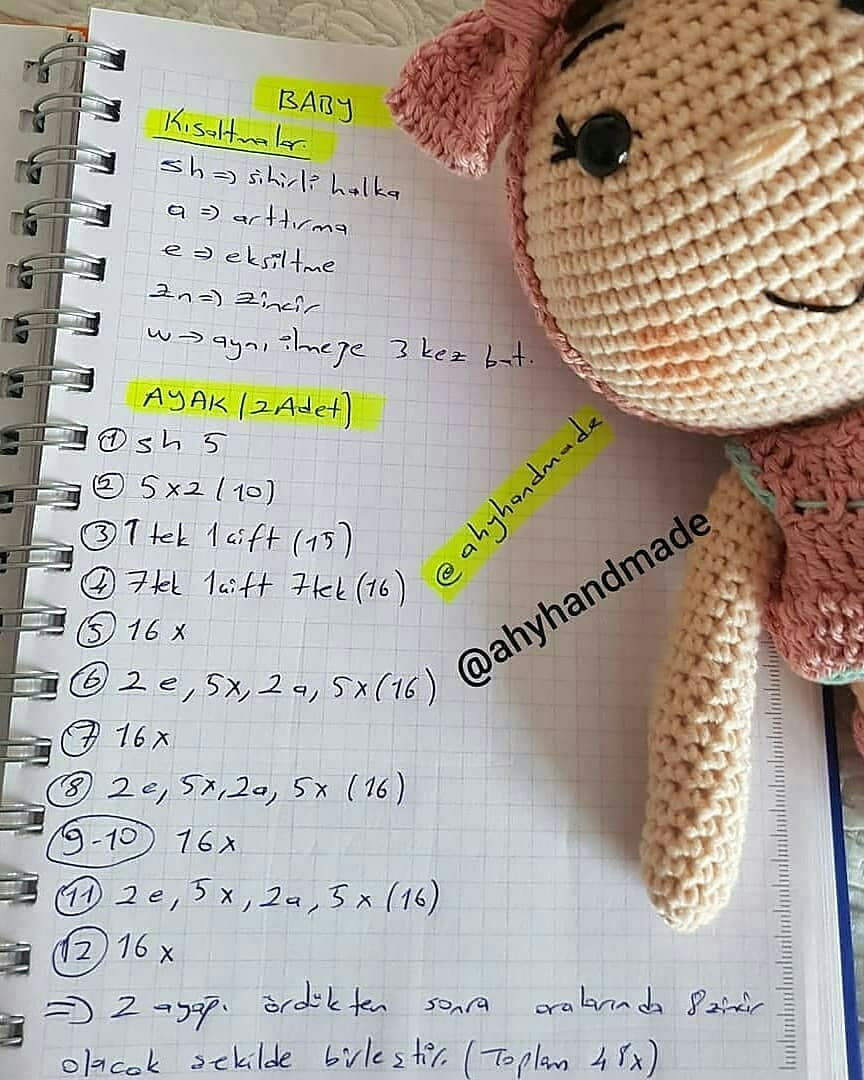 BABY
Kısaltmalar.
sh => sihirli halka
a => arttırma
e => eksiltme
zn => zincir
w => aynı ilmeğe 3 kez bat.
AYAK (2 Adet)
① sh 5
② 5x2 (10)
③ 1 tek 1 çift (15)
④ 7 tek 1 çift 7 tek (16)
⑤ 16 x
⑥ 2 e, 5x, 2 a, 5x (16)
⑦ 16 x
⑧ 2 e, 5x, 2a, 5x (16)
9-10 16x
⑪ 2 e, 5 x, 2a, 5 x (16)
⑫ 16 x
=> 2 ayağı ördükten sonra aralarında 8 zincir
olacak şekilde birleştir. (Toplam 48x)
@ahyhandmade
@ahyhandmade